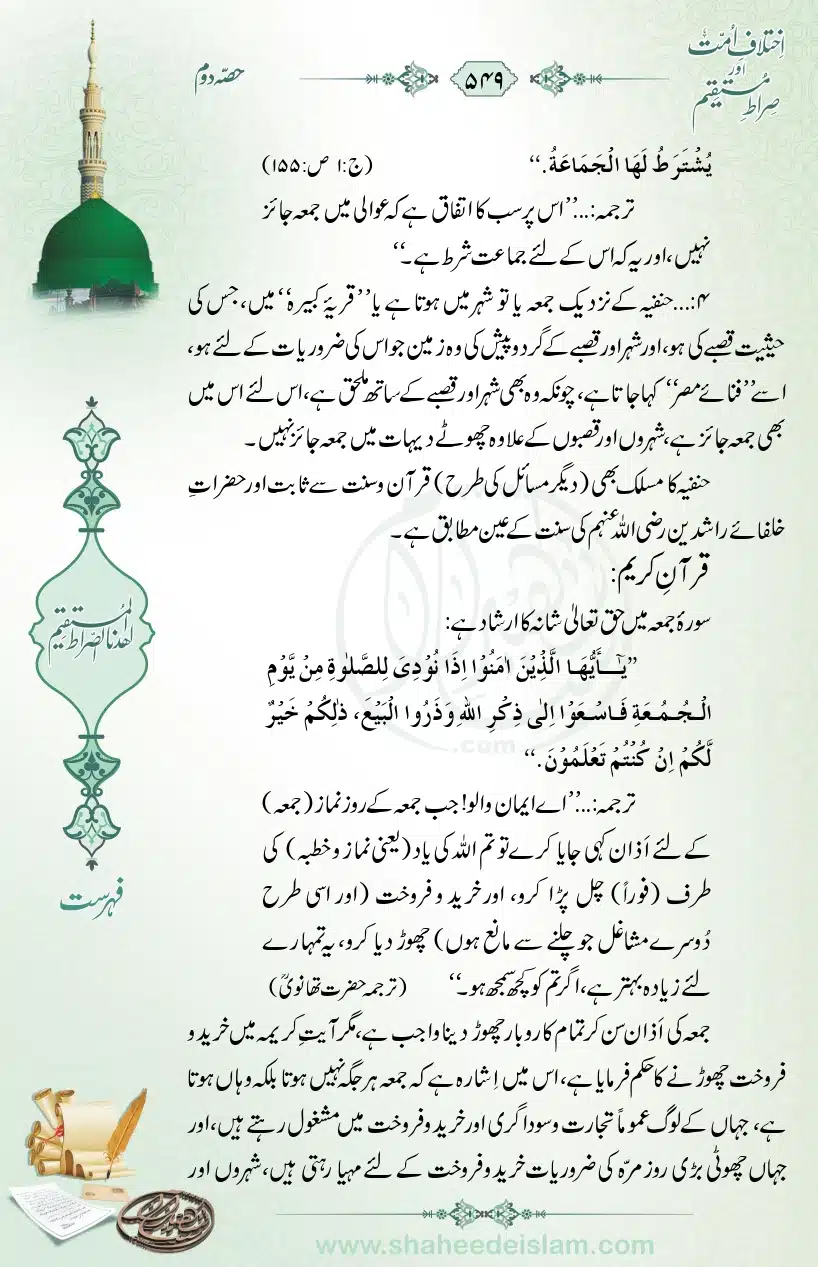 اِختلافِ اُمّت
اور
صراطِ مُستقیم
۵۴۹
حصّہ دوم
یُشْتَرَطُ لَھَا الْجَمَاعَةُ.‘‘ (ج:۱ ص:۱۵۵)
ترجمہ:...’’اس پر سب کا اتفاق ہے کہ عوالی میں جمعہ جائز
نہیں، اور یہ کہ اس کے لئے جماعت شرط ہے۔‘‘
۴:...حنفیہ کے نزدیک جمعہ یا تو شہر میں ہوتا ہے یا ’’قریۂ کبیرہ‘‘ میں، جس کی
حیثیت قصبے کی ہو، اور شہر اور قصبے کے گرد و پیش کی وہ زمین جو اس کی ضروریات کے لئے ہو،
اسے ’’فنائے مصر‘‘ کہا جاتا ہے، چونکہ وہ بھی شہر اور قصبے کے ساتھ ملحق ہے، اس لئے اس میں
بھی جمعہ جائز ہے، شہروں اور قصبوں کے علاوہ چھوٹے دیہات میں جمعہ جائز نہیں۔
حنفیہ کا مسلک بھی (دیگر مسائل کی طرح) قرآن و سنت سے ثابت اور حضراتِ
خلفائے راشدین رضی اللہ عنہم کی سنت کے عین مطابق ہے۔
قرآنِ کریم:
سورۂ جمعہ میں حق تعالیٰ شانہ کا ارشاد ہے:
’’یٰٓــاَیُّھَا الَّذِیْنَ اٰمَنُوْا اِذَا نُوْدِیَ لِلصَّلٰوةِ مِنْ یَّوْمِ
الْجُمُعَةِ فَاسْعَوْا اِلٰی ذِکْرِ اللهِ وَذَرُوا الْبَیْعَ، ذٰلِکُمْ خَیْرٌ
لَّکُمْ اِنْ کُنْتُمْ تَعْلَمُوْنَ.‘‘
ترجمہ:...’’اے ایمان والو! جب جمعہ کے روز نماز (جمعہ)
کے لئے اَذان کہی جایا کرے تو تم اللہ کی یاد (یعنی نماز و خطبہ) کی
طرف (فوراً) چل پڑا کرو، اور خرید و فروخت (اور اسی طرح
دُوسرے مشاغل جو چلنے سے مانع ہوں) چھوڑ دیا کرو، یہ تمہارے
لئے زیادہ بہتر ہے، اگر تم کو کچھ سمجھ ہو۔‘‘ (ترجمہ حضرت تھانویؒ)
جمعہ کی اَذان سن کر تمام کاروبار چھوڑ دینا واجب ہے، مگر آیتِ کریمہ میں خرید و
فروخت چھوڑنے کا حکم فرمایا ہے، اس میں اِشارہ ہے کہ جمعہ ہر جگہ نہیں ہوتا بلکہ وہاں ہوتا
ہے، جہاں کے لوگ عموماً تجارت و سوداگری اور خرید و فروخت میں مشغول رہتے ہیں، اور
جہاں چھوٹی بڑی روز مرّہ کی ضروریات خرید و فروخت کے لئے مہیا رہتی ہیں، شہروں اور
اھدنا الصراط المستقیم
فہرست
.com
www.shaheedeislam.com